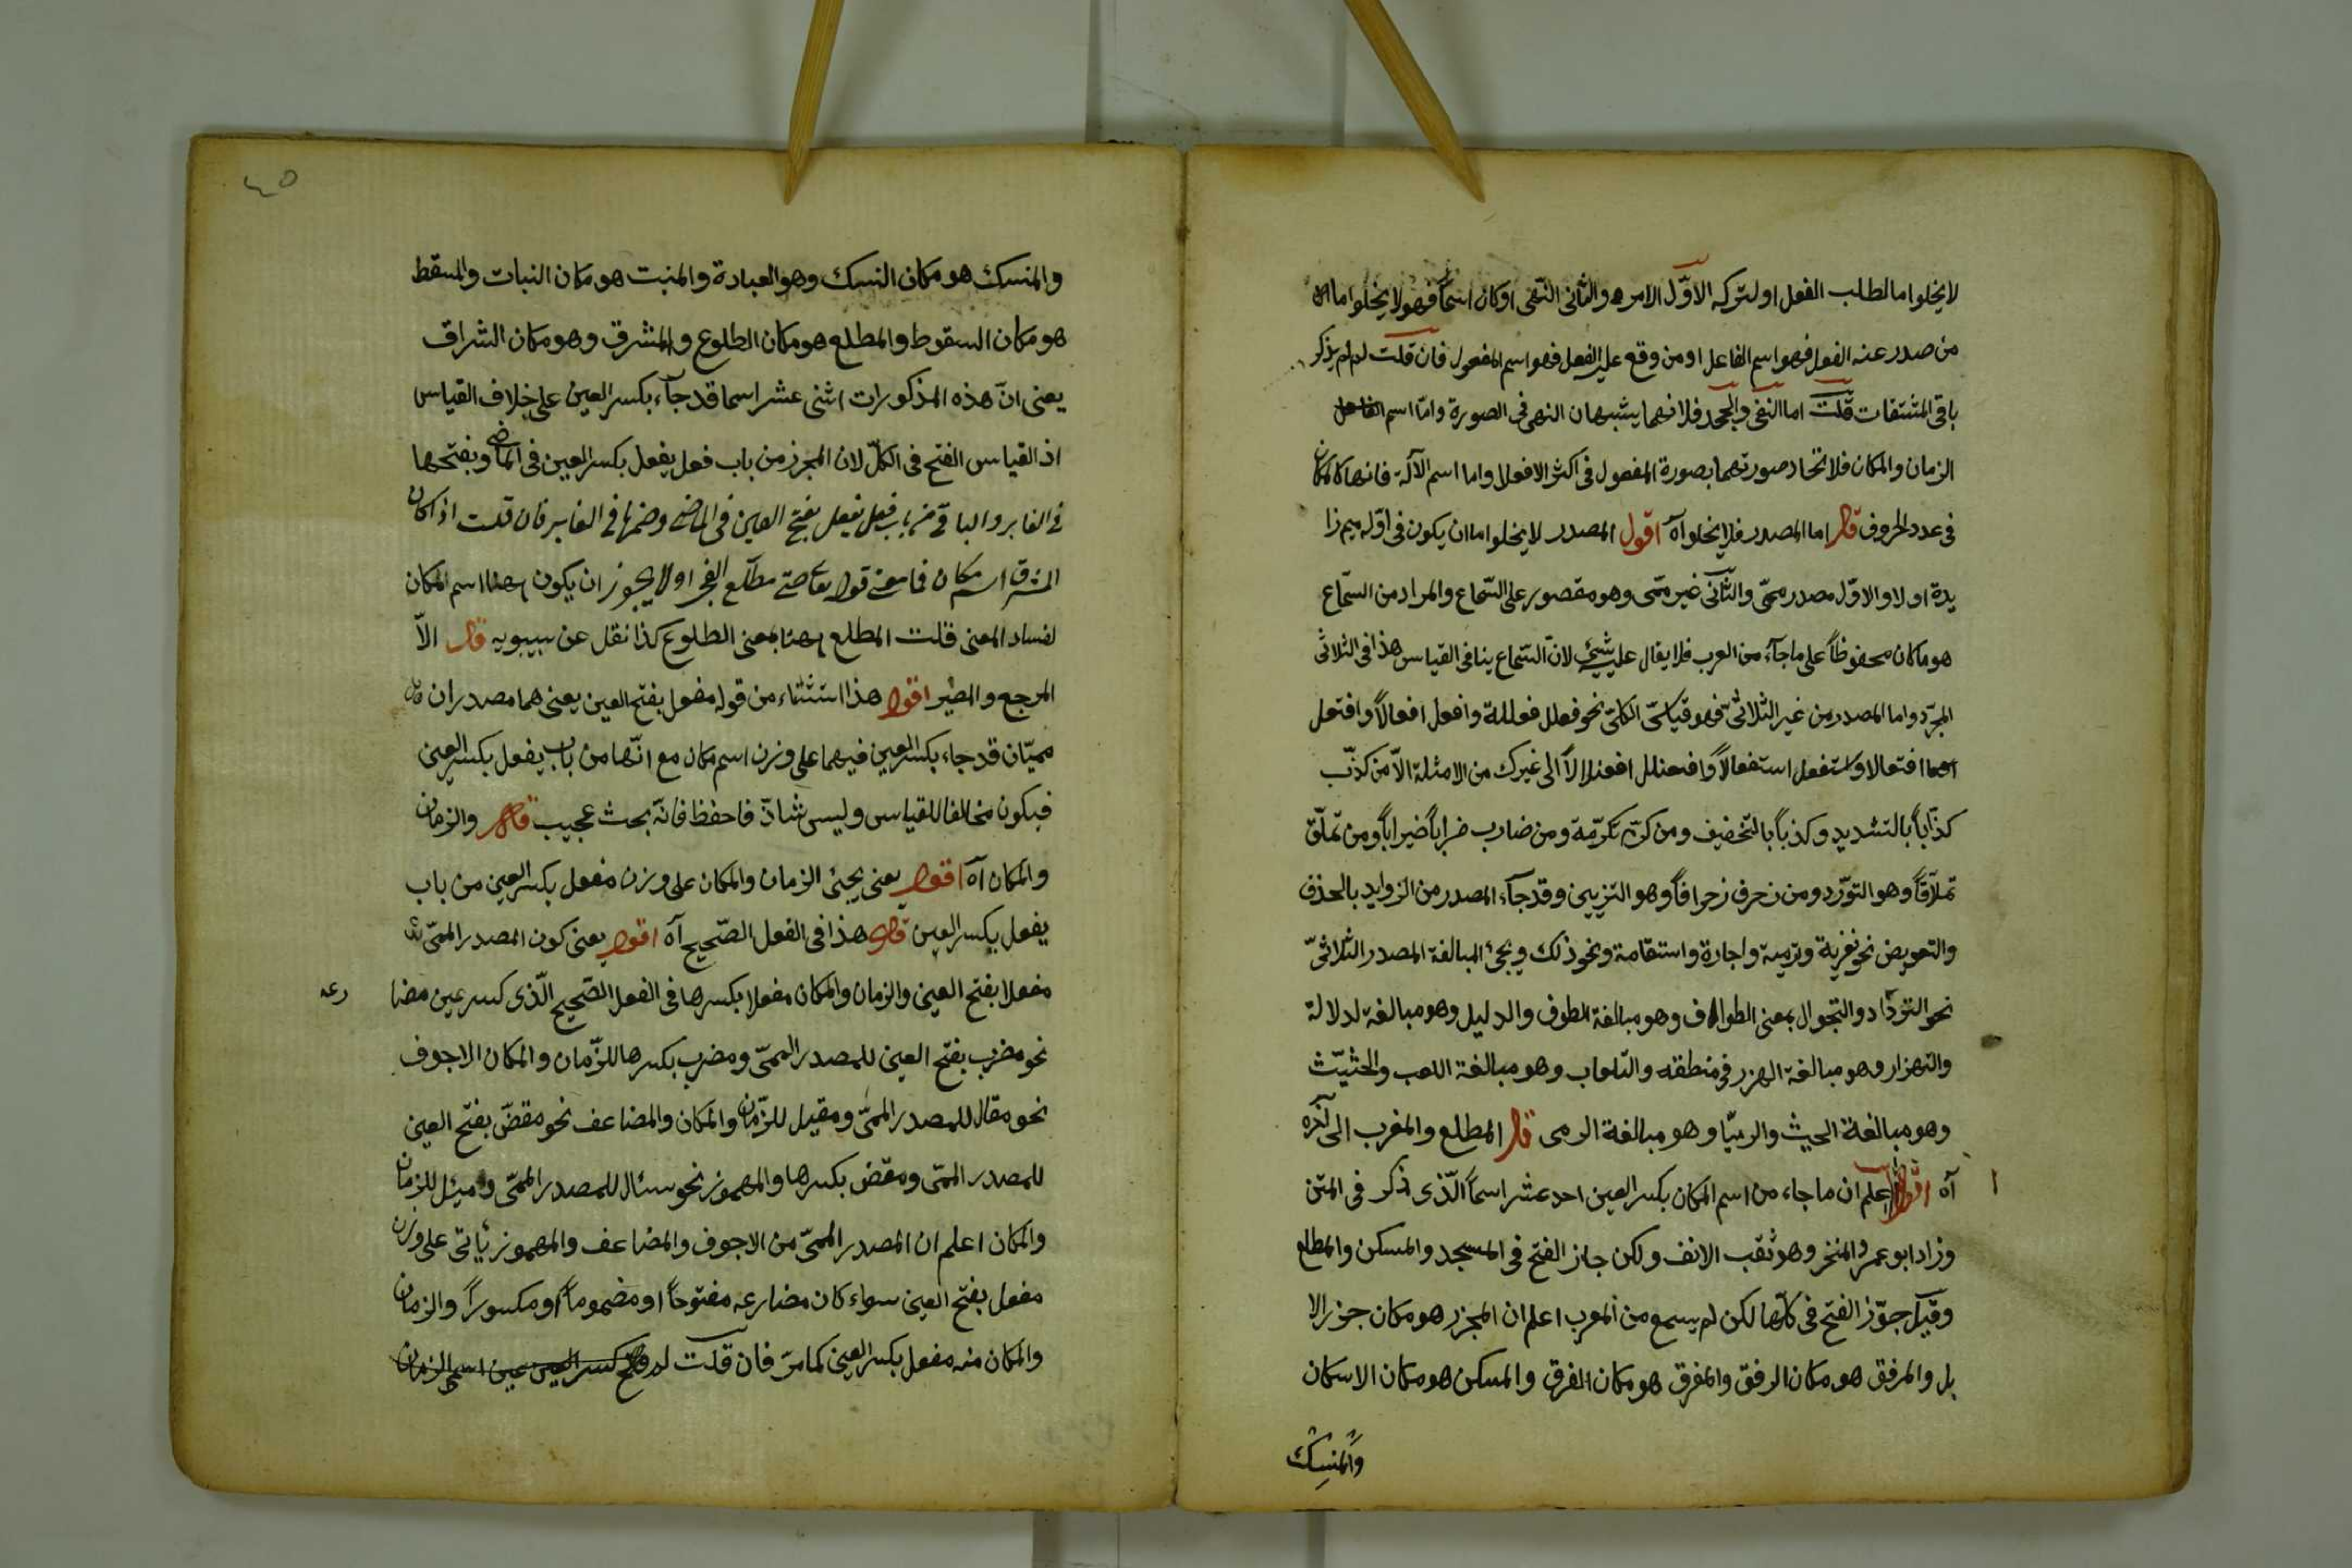 لا يخلوا اما لطلب الفعل او لتركه الاوّل الامر والثانى النّهى او كان اسماً فهو لا يخلوا اما
من صدر عنه الفعل فهو اسم الفاعل او من وقع عليه الفعل فهو اسم المفعول فان قلت لم لم يذكر
باقى المشتقات قلت اما النفى والجحد فلانهما يشبهان النهى فى الصورة وامّا اسم
الزمان والمكان فلاتحاد صورتهما بصورة المفعول فى اكثر الافعال واما اسم الآلة فانها كالمكان
فى عدد الحروف قال اما المصدر فلا يخلوا آه اقول المصدر لا يخلوا اما ان يكون فى اوّله ميم زا
يدة او لا والاوّل مصدر ميمّى والثّانى غير ميمّى وهو مقصور على السّماع والمراد من السّماع
هو ما كان محفوظاً على ما جآء من العرب فلا يقال عليه شئ لانّ السّماع ينافى القياس هذا فى الثلاثى
المجرّد واما المصدر من غير الثلاثىّ فهو قياسىّ الكلىّ نحو فعلل فعللة وافعل افعالاً وافتعل
افتعالا واستفعل استفعالاً وافعنلل افعنلالاً الى غيرك من الامثلة الاّ من كذّب
كذّاباً بالتشديد وكذباً بالتخفيف ومن كرّم تكرّمة ومن ضارب ضراباً ضيراباً ومن تملّق
تملاّقاً وهو التودّد ومن زخرف زخرافاً وهو التزيين وقد جآء المصدر من الزوايد بالحذف
والتعويض نحو تعزية وترمية واجارة واستقامة ونحو ذلك ويجئ المبالغة المصدر الثلاثىّ
نحو التّرداد والتجوال بمعنى الطواف وهو مبالغة الطوف والدليل وهو مبالغة لدلالة
والتهزار وهو مبالغة الهزر فى منطقه والتّلعاب وهو مبالغة اللعب والحثيّث
وهو مبالغة الحيث والرميّا وهو مبالغة الرمى قال المطلع والمغرب الى آخره
آه اقول اعلم ان ما جاء من اسم المكان بكسر العين احد عشر اسماً الّذى ذكر فى المتن
وزاد ابو عمر والمنخر وهو ثقب الانف ولكن جاز الفتح فى المسجد والمسكن والمطلع
وقيل جوّز الفتح فى كلّها لكن لم يسمع من العرب اعلم ان المجزر هو مكان جزر الا
بل والمرفق هو مكان الرفق والمفرق هو مكان الفرق والمسكن هو مكان الاسكان
والمنسك
٤٥
والمنسك هو مكان النسك وهو العبادة والمنبت هو مكان النبات والمسقط
هو مكان السقوط والمطلع هو مكان الطلوع والمشرق وهو مكان الشراق
يعنى انّ هذه المذكورات اثنى عشر اسما قد جآء بكسر العين على خلاف القياس
اذ القياس الفتح فى الكلّ لان المجزر من باب فعل يفعل بكسر العين فى الماضى وبفتحها
فى الغابر والباقى من باب فعل يفعل بفتح العين فى الماضى وضمها فى الغابر فان قلت اذا كان
المشرق اسم مكان فما معنى قوله تعا حتى مطلع الفجر اولا يجوز ان يكون ههنا اسم المكان
لفساد المعنى قلت المطلع ههنا بمعنى الطلوع كذا نقل عن سيبويه قال الاّ
المرجع والمصير اقول هذا استثناء من قوله مفعل بفتح العين يعنى هما مصدران
ميميّان قد جاء بكسر العين فيهما على وزن اسم مكان مع انّها من باب يفعل بكسر العين
فيكون مخالفا للقياس وليس شاذّ فاحفظ فانّه بحث عجيب قال والزمان
والمكان آه اقول يعنى يجئ الزمان والمكان على وزن مفعل بكسر العين من باب
يفعل بكسر العين قال هذا فى الفعل الصّحيح آه اقول يعنى كون المصدر الميمىّ
مفعلا بفتح العين والزمان والمكان مفعلا بكسرها فى الفعل الصّحيح الّذى كسر عين مضا رعه
نحو مضرب بفتح العين للمصدر الميمىّ ومضرب بكسرها للزّمان والمكان الاجوف
نحو مقال للمصدر الميمىّ ومقيل للزّمان والمكان والمضاعف نحو مقضّ بفتح العين
للمصدر الميمّى ومقضّ بكسرها والمهموز نحو سئال للمصدر الميمّى وميئل للزمان
والمكان اعلم ان المصدر الميمىّ من الاجوف والمضاعف والمهموز يأتى على وزن
مفعل بفتح العين سواء كان مضارعه مفتوحاً او مضموماً او مكسوراً والزمان
والمكان منه مفعل بكسر العين كما مرّ فان قلت لم فتح كسر العين عين اسمى الزمان